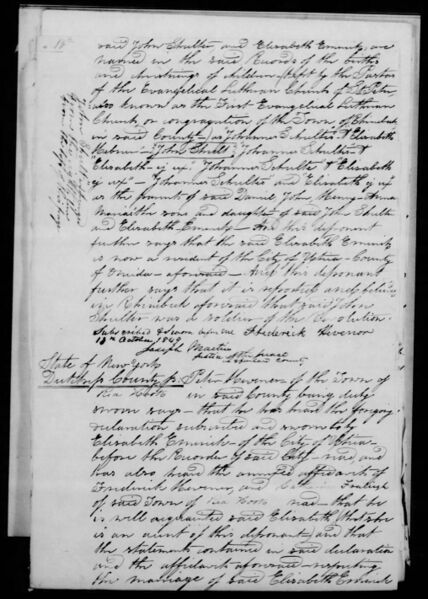 said John Shulter and Elisabeth Emmity, are
named in the said Records of the births
and christnings of children kept by the Pastor
of the Evangelical Lutheran Church of St Peter
also known as the First Evangelical Lutheran
Church or congregation of the Town of Rhinebeck
in said County as Johannes Schulter & Elisabeth
John Shulter Johannes Shulter &
Elisabeth Johannes Schulter & Elisabeth
Johannes Schulter and Elisabeth
as the parents of said Daniel John Henry Anna
Maria the sons and daughter of said John Shulter
and Elisabeth Emmity And this deponent
further says that the said Elisabeth Emmity
is now a resident of the City of Utica County
of Oneida aforesaid And this deponent
further says that it is reported and believed
in Rhinebeck aforesaid that said John
Shulter was a soldier of the Revolution.
Subscribed & sworn before me Frederick Hevenor
18th October 1849
Joseph Martin
Justice of the peace
Dutchess County
State of New York
Dutchess County ss. Peter Hevenor of the Town of
Red Hook in said County being duly
sworn says that he has heard the foregoing
declaration subscribed and sworn to by
Elisabeth Emmity of the City of Utica
before the Recorder of said City read and
has also heard the annexed affidavit of
Frederick Hevenor and Fraleigh
of said Town of Red Hook read that he
is well acquainted said Elisabeth that she
is an aunt of this deponent, and that
the statements contained in said declaration
and the affidavit aforesaid respecting
the marriage of said Elisabeth Emmity